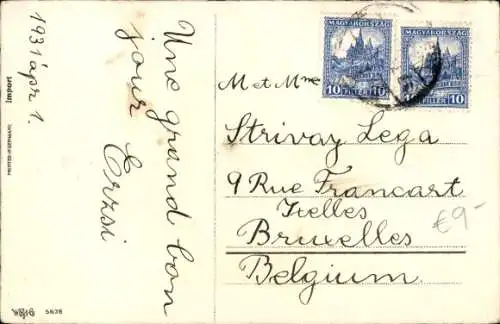 1931 ápr 1.
Une grand bon
jour
Erzsi
Import
5638
MAGYARORSZÁG
10 10
FILLÉR
MAGYARORSZÁG
10
FILLÉR
M et Mme
Strivay Lega
9 Rue Francart
Ixelles
Bruxelles
Belgium
€9-